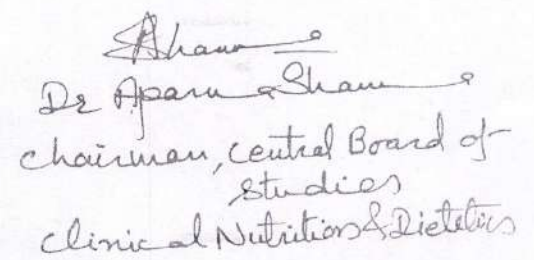 Dr Aparna Sharma
Chairman, Central Board of
Studies
Clinical Nutrition & Dietetics